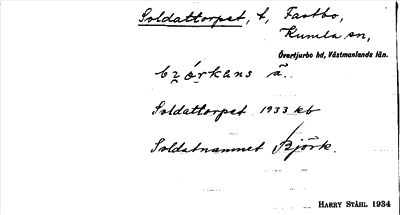 Soldattorpet, t, Fastbo,
Kumla sn,
Övertjurbo hd, Västmanlands län.
bz̤órkens ā̃.
Soldattorpet 1933 kb
Soldatnamnet Björk.
HARRY STÅHL 1934